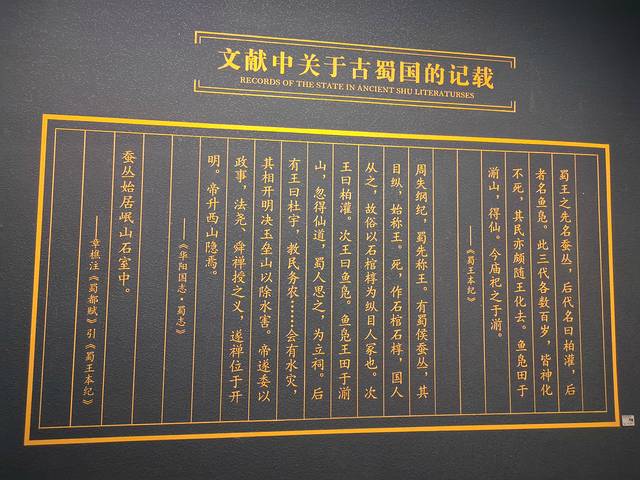 文献中关于古蜀国的记载
RECORDS OF THE STATE IN ANCIENT SHU LITERATURSES
蜀王之先名蚕丛，后代名曰柏灌，后
者名鱼凫。此三代各数百岁，皆神化
不死，其民亦颇随王化去。鱼凫田于
湔山，得仙。今庙祀之于湔。
——《蜀王本纪》
周失纲纪，蜀先称王。有蜀侯蚕丛，其
目纵，始称王。死，作石棺石椁，国人
从之，故俗以石棺椁为纵目人冢也。次
王曰柏灌。次王曰鱼凫。鱼凫王田于湔
山，忽得仙道，蜀人思之，为立祠。后
有王曰杜宇，教民务农……会有水灾，
其相开明决玉垒山以除水害。帝遂委以
政事，法尧、舜禅授之义，遂禅位于开
明。帝升西山隐焉。
——《华阳国志·蜀志》
蚕丛始居岷山石室中。
——章樵注《蜀都赋》引《蜀王本纪》